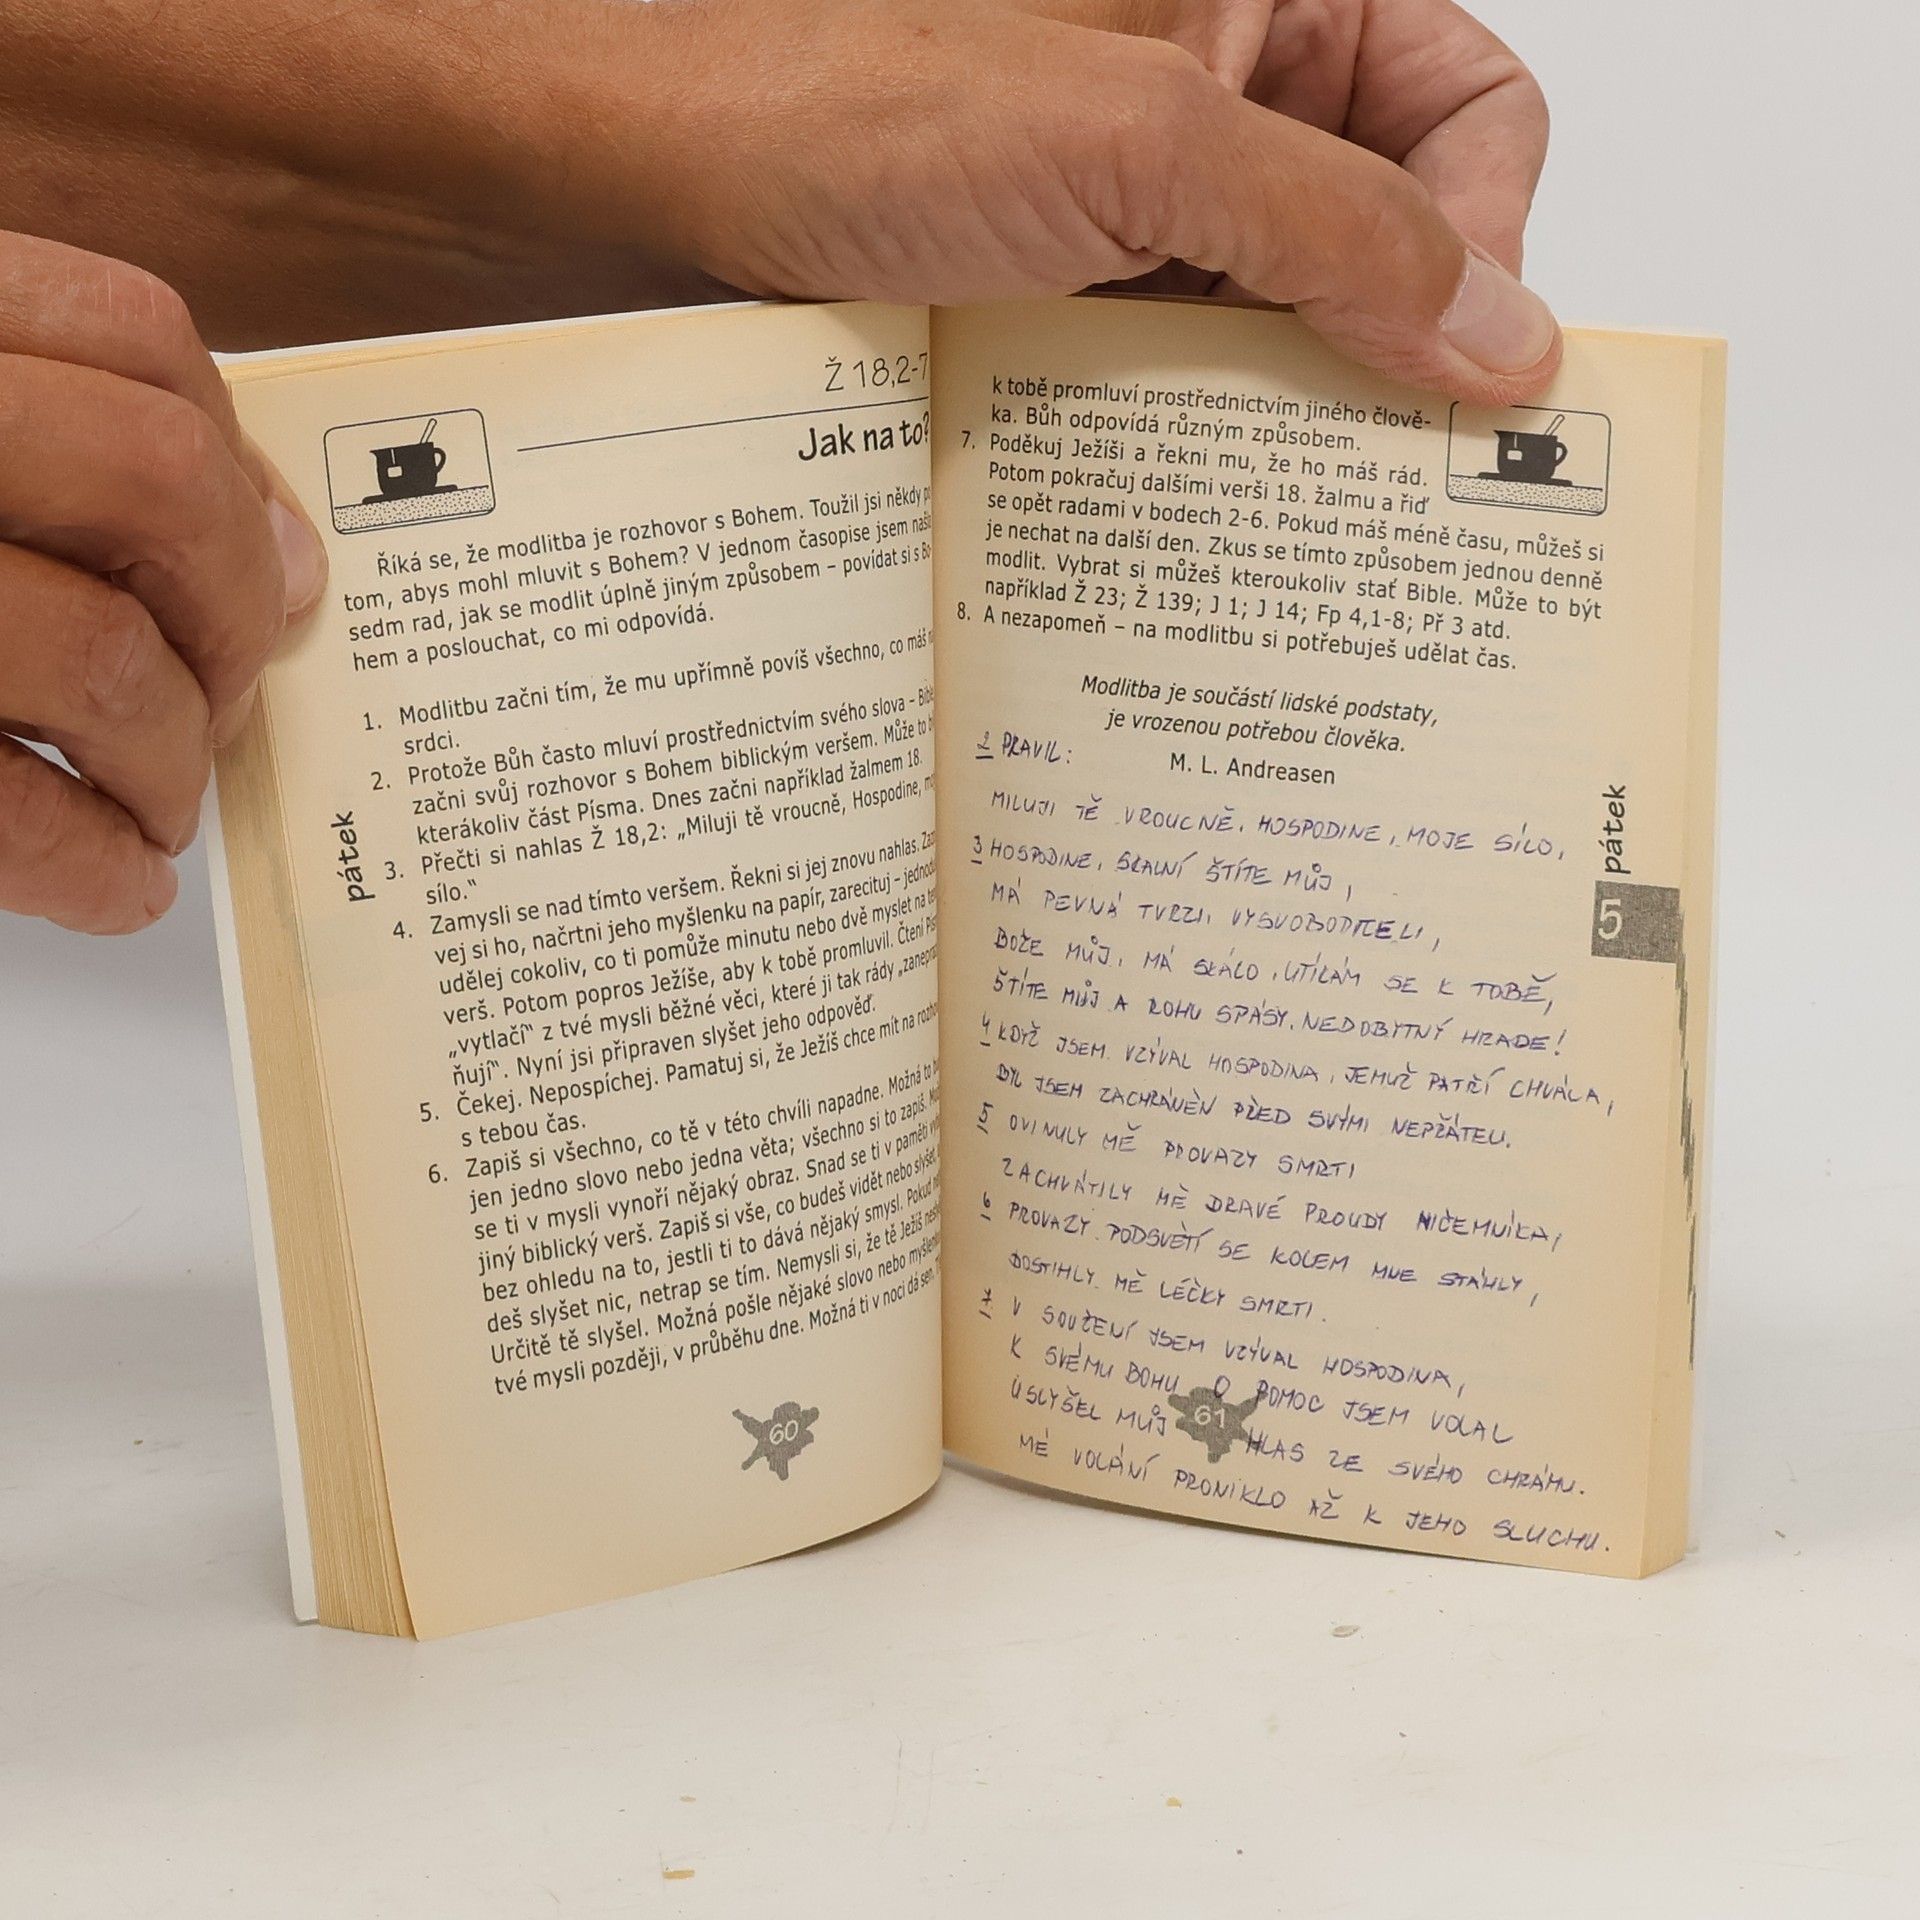 Ž 18,2-7
Jak na to?
Říká se, že modlitba je rozhovor s Bohem. Toužil jsi někdy po
tom, abys mohl mluvit s Bohem? V jednom časopise jsem našla
sedm rad, jak se modlit úplně jiným způsobem – povídat si s Bo-
hem a poslouchat, co mi odpovídá.
1. Modlitbu začni tím, že mu upřímně povíš všechno, co máš
srdci.
2. Protože Bůh často mluví prostřednictvím svého slova – Bible
začni svůj rozhovor s Bohem biblickým veršem. Může to
kterákoliv část Písma. Dnes začni například žalmem 18.
3. Přečti si nahlas Ž 18,2: „Miluji tě vroucně, Hospodine,
sílo.“
4. Zamysli se nad tímto veršem. Řekni si jej znovu nahlas.
vej si ho, načrtni jeho myšlenku na papír, zarecituj – jednoduše
udělej cokoliv, co ti pomůže minutu nebo dvě myslet na
verš. Potom popros Ježíše, aby k tobě promluvil. Čtení
„vytlačí“ z tvé mysli běžné věci, které ji tak rády
ňují“. Nyní jsi připraven slyšet jeho odpověď.
5. Čekej. Nepospíchej. Pamatuj si, že Ježíš chce mít na
s tebou čas.
6. Zapiš si všechno, co tě v této chvíli napadne. Možná to
jen jedno slovo nebo jedna věta; všechno si to zapiš.
se ti v mysli vynoří nějaký obraz. Snad se ti v paměti
jiný biblický verš. Zapiš si vše, co budeš vidět nebo slyšet,
bez ohledu na to, jestli ti to dává nějaký smysl. Pokud
deš slyšet nic, netrap se tím. Nemysli si, že tě Ježíš
Určitě tě slyšel. Možná pošle nějaké slovo nebo
tvé mysli později, v průběhu dne. Možná ti v noci dá sen.
pátek
60
k tobě promluví prostřednictvím jiného člově-
ka. Bůh odpovídá různým způsobem.
7. Poděkuj Ježíši a řekni mu, že ho máš rád.
Potom pokračuj dalšími verši 18. žalmu a řiď
se opět radami v bodech 2-6. Pokud máš méně času, můžeš si
je nechat na další den. Zkus se tímto způsobem jednou denně
modlit. Vybrat si můžeš kteroukoliv stať Bible. Může to být
například Ž 23; Ž 139; J 1; J 14; Fp 4,1-8; Př 3 atd.
8. A nezapomeň – na modlitbu si potřebuješ udělat čas.
Modlitba je součástí lidské podstaty,
je vrozenou potřebou člověka.
M. L. Andreasen
2 PRAVIL:
MILUJI TĚ VROUCNĚ, HOSPODINE, MOJE SÍLO,
3 HOSPODINE, SKALNÍ ŠTÍTE MŮJ,
MÁ PEVNÁ TVRZI, VYSVOBODITELI,
BOŽE MŮJ, MÁ SKÁLO, UTÍKÁM SE K TOBĚ,
ŠTÍTE MŮJ A ROHU SPÁSY, NEDOBYTNÝ HRADE!
4 KDYŽ JSEM VZÝVAL HOSPODINA, JEMUŽ PATŘÍ CHVÁLA,
BYL JSEM ZACHRÁNĚN PŘED SVÝMI NEPŘÁTELI.
5 OVINULY MĚ PROVAZY SMRTI
ZACHVÁTILY MĚ DRAVÉ PROUDY NIČEMNÍKA,
6 PROVAZY PODSVĚTÍ SE KOLEM MNE STÁHLY,
DOSTIHLY MĚ LÉČKY SMRTI.
7 V SOUŽENÍ JSEM VZÝVAL HOSPODINA,
K SVÉMU BOHU O POMOC JSEM VOLAL
USLYŠEL MŮJ HLAS ZE SVÉHO CHRÁMU.
MÉ VOLÁNÍ PRONIKLO AŽ K JEHO SLUCHU.
61
pátek
5